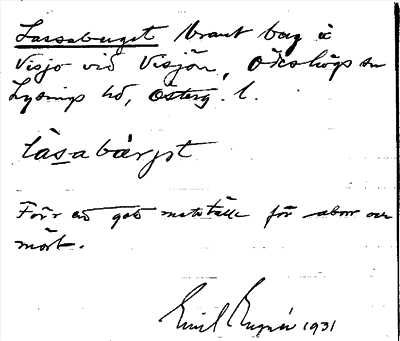 Lassaberget Brant berg i
Visjö vid Visjön, Ödeshögs sn
Lysings hd, Österg. l.
làsabárjet
Förr ett gott metställe för aborr och
mört.
Emil 1931